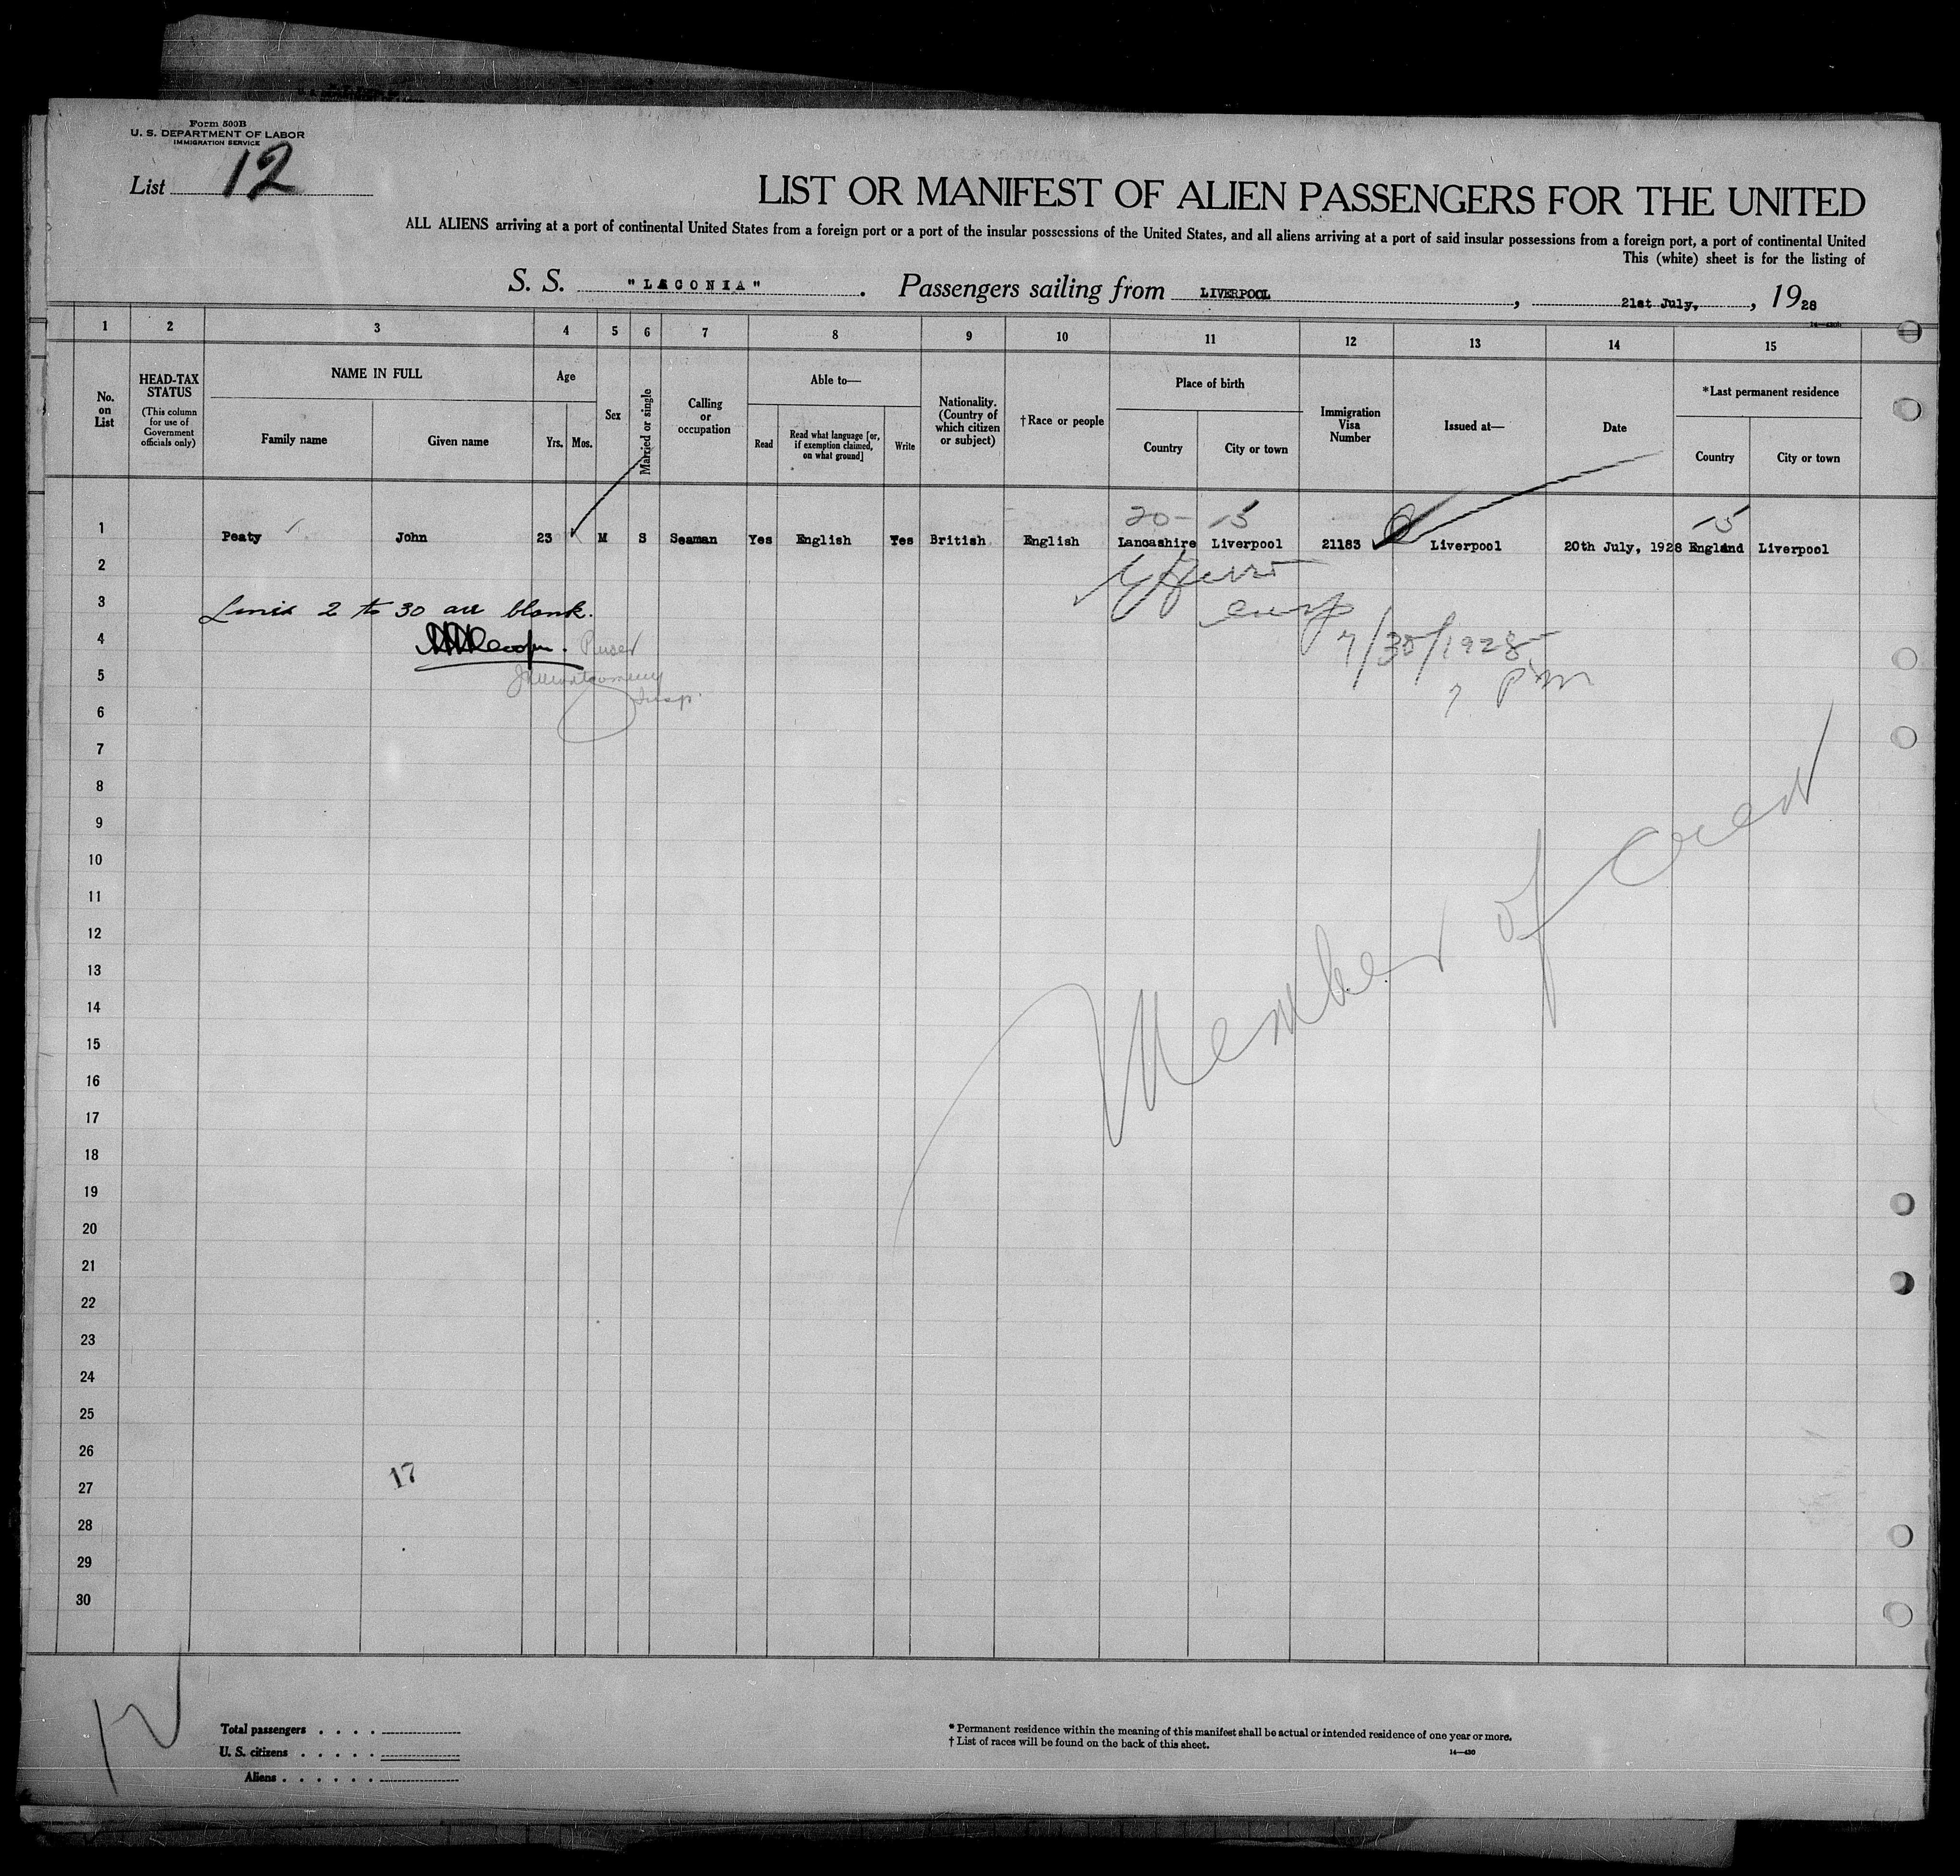 Form 500B
U. S. DEPARTMENT OF LABOR
IMMIGRATION SERVICE
List 12
LIST OR MANIFEST OF ALIEN PASSENGERS FOR THE UNITED
ALL ALIENS arriving at a port of continental United States from a foreign port or a port of the insular possessions of the United States, and all aliens arriving at a port of said insular possessions from a foreign port, a port of continental United
This (white) sheet is for the listing of
S. S. "LACONIA". Passengers sailing from LIVERPOOL, 21st July, 1928
1 2 3 4 5 6 7 8 9 10 11 12 13 14 15
No. on List
HEAD-TAX STATUS
(This column for use of Government officials only)
NAME IN FULL
Family name
Given name
Age
Yrs.
Mos.
Sex
Married or single
Calling or occupation
Able to—
Read
Read what language [or, if exemption claimed, on what ground]
Write
Nationality. (Country of which citizen or subject)
†Race or people
Place of birth
Country
City or town
Immigration Visa Number
Issued at—
Date
*Last permanent residence
Country
City or town
20- 15 15
1 Peaty John 23 M S Seaman Yes English Yes British English Lancashire Liverpool 21183 Liverpool 20th July, 1928 England Liverpool
2
3 Lines 2 to 30 are blank.
4 Purser
7/30/1928
5 Insp.
7 PM
6
7
8
9
Member of crew
10
11
12
13
14
15
16
17
18
19
20
21
22
23
24
25
26
17
27
28
29
30
Total passengers . . . .
U. S. citizens . . . . .
Aliens . . . . . .
* Permanent residence within the meaning of this manifest shall be actual or intended residence of one year or more.
† List of races will be found on the back of this sheet.
14—430
12